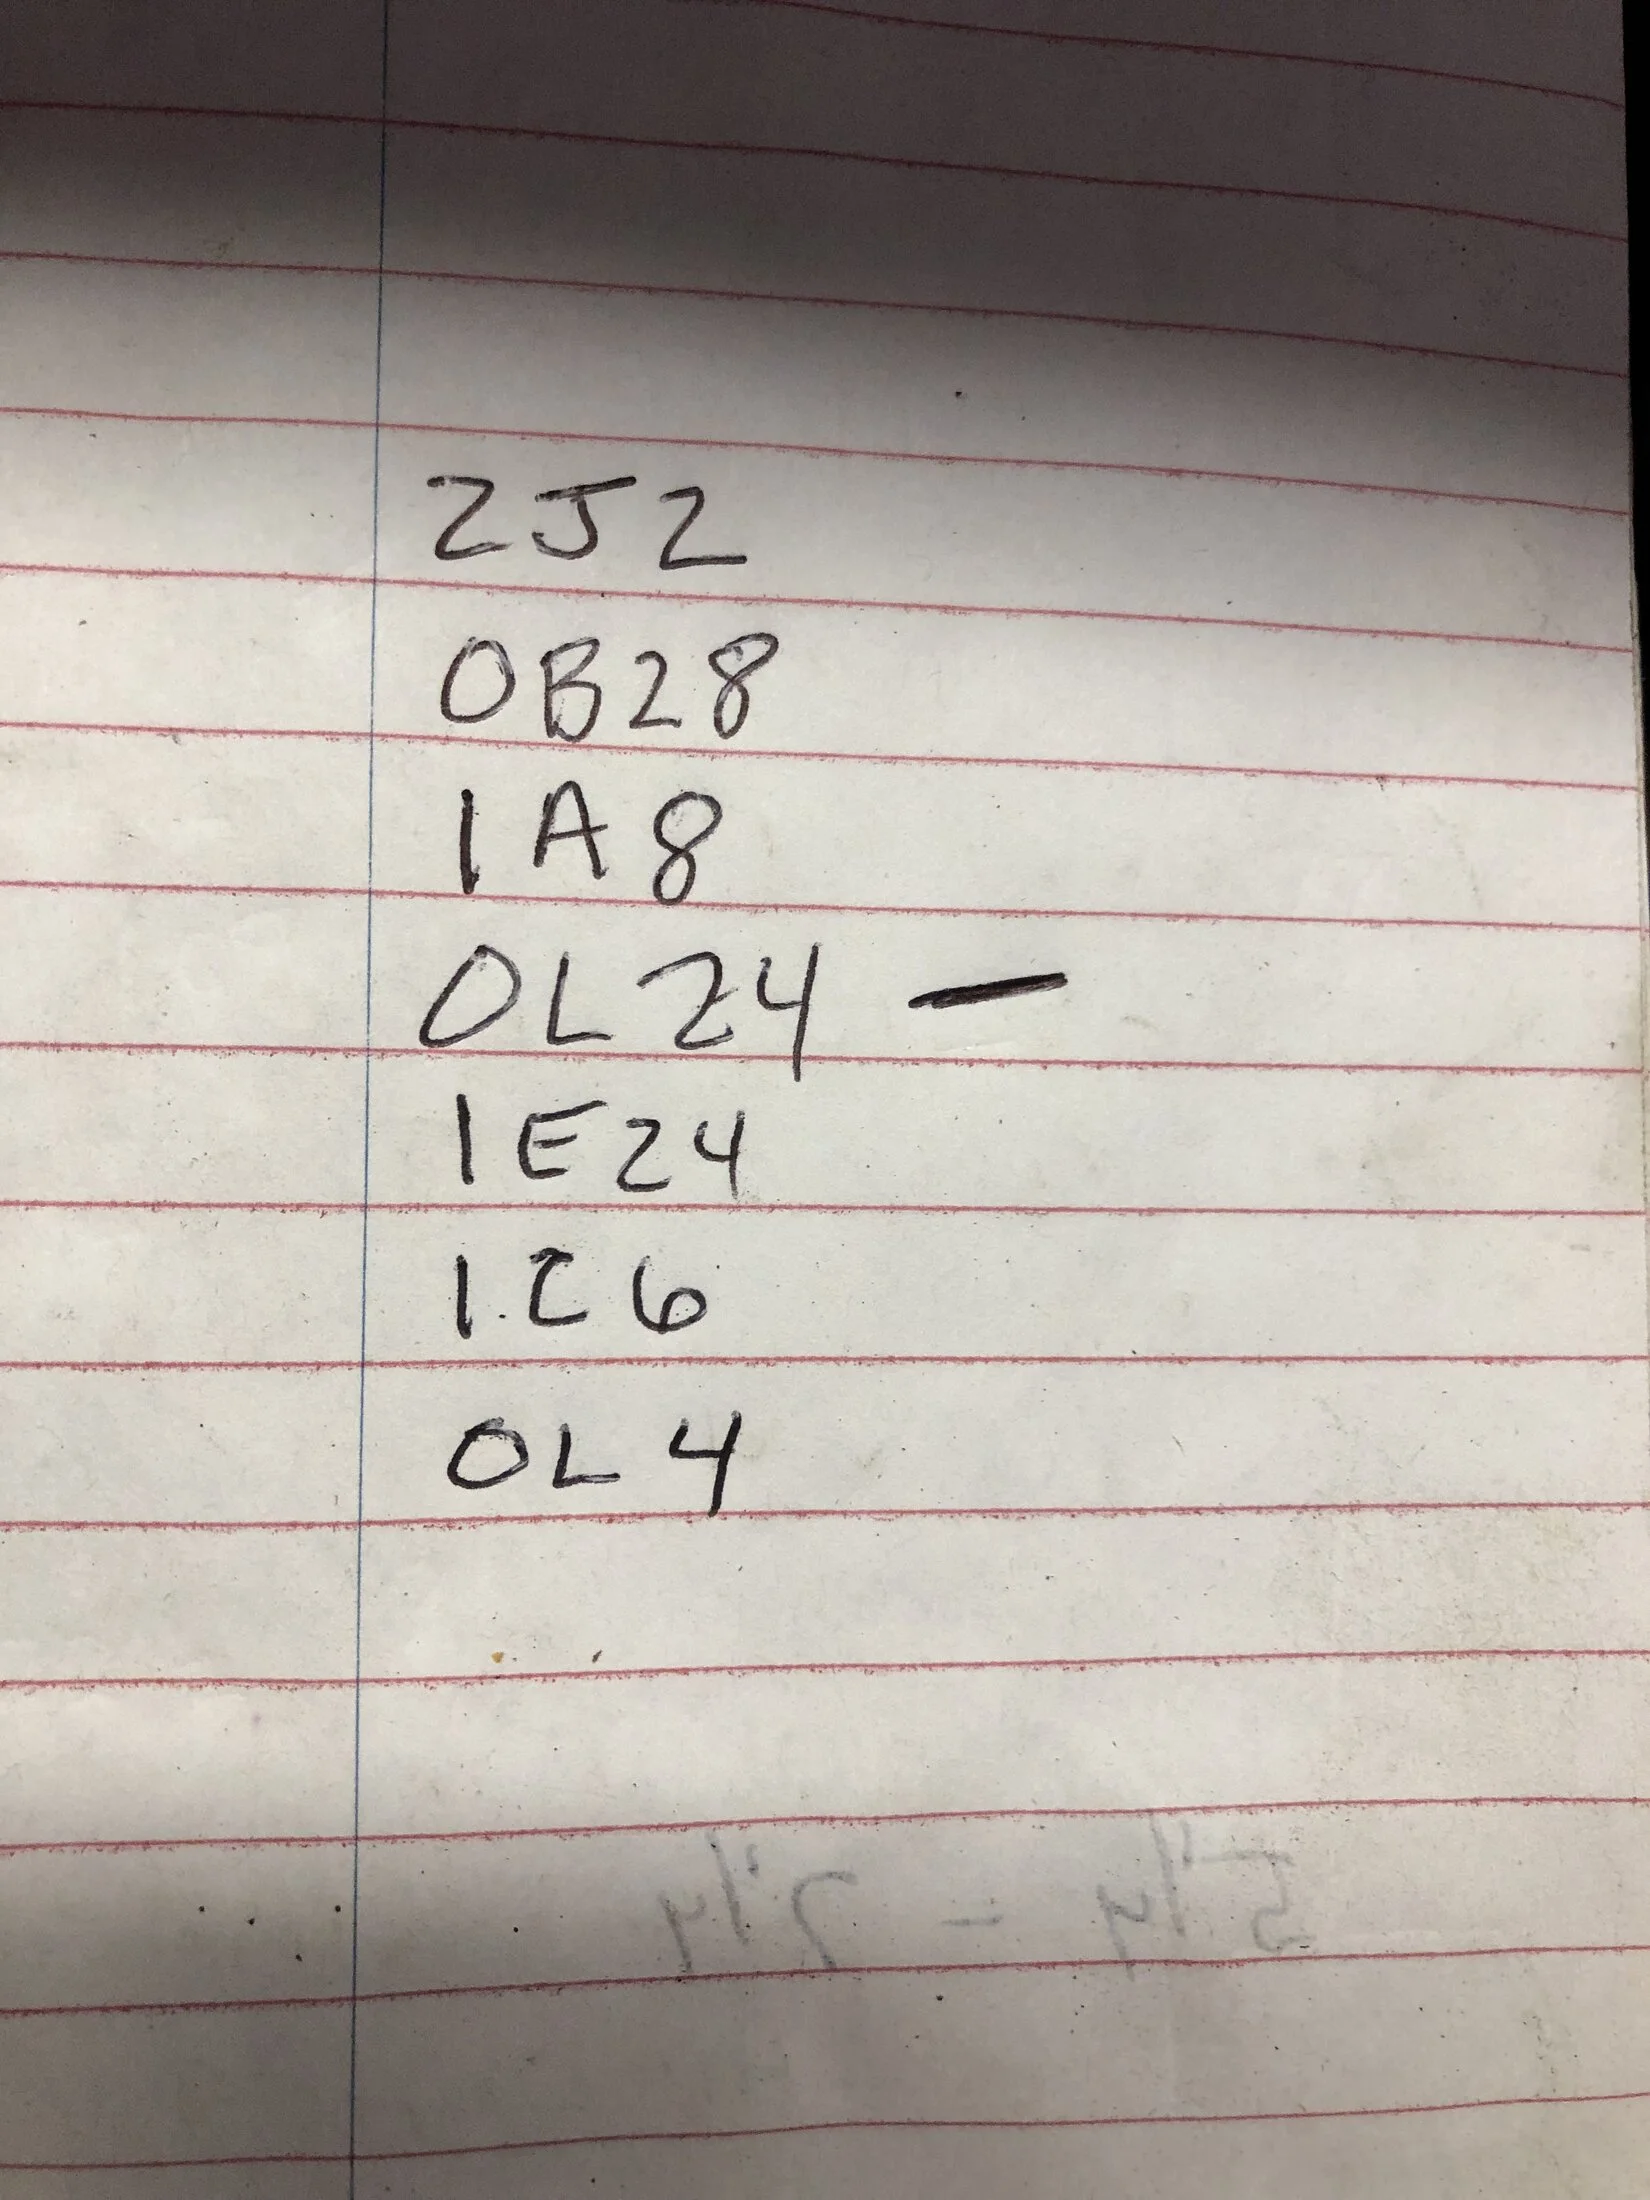 2J2
0B28
1A8
0L24 —
1E24
1C6
0L4